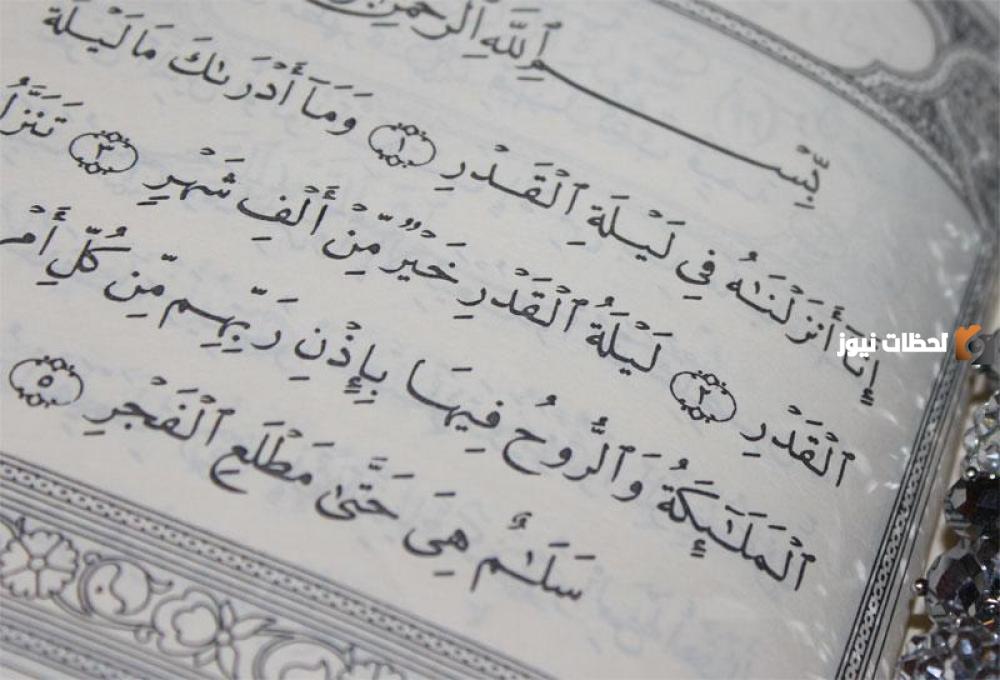 بِّسْـــمِ ٱللَّهِ ٱلرَّحْمَٰنِ
إِنَّآ أَنزَلْنَٰهُ فِى لَيْلَةِ ٱلْقَدْرِ ١ وَمَآ أَدْرَىٰكَ مَا لَيْلَةُ
ٱلْقَدْرِ ٢ لَيْلَةُ ٱلْقَدْرِ خَيْرٌ مِّنْ أَلْفِ شَهْرٍ ٣ تَنَزَّلُ
ٱلْمَلَٰٓئِكَةُ وَٱلرُّوحُ فِيهَا بِإِذْنِ رَبِّهِم مِّن كُلِّ أَمْرٍ
سَلَٰمٌ هِىَ حَتَّىٰ مَطْلَعِ ٱلْفَجْرِ ٥
لحظات نيوز